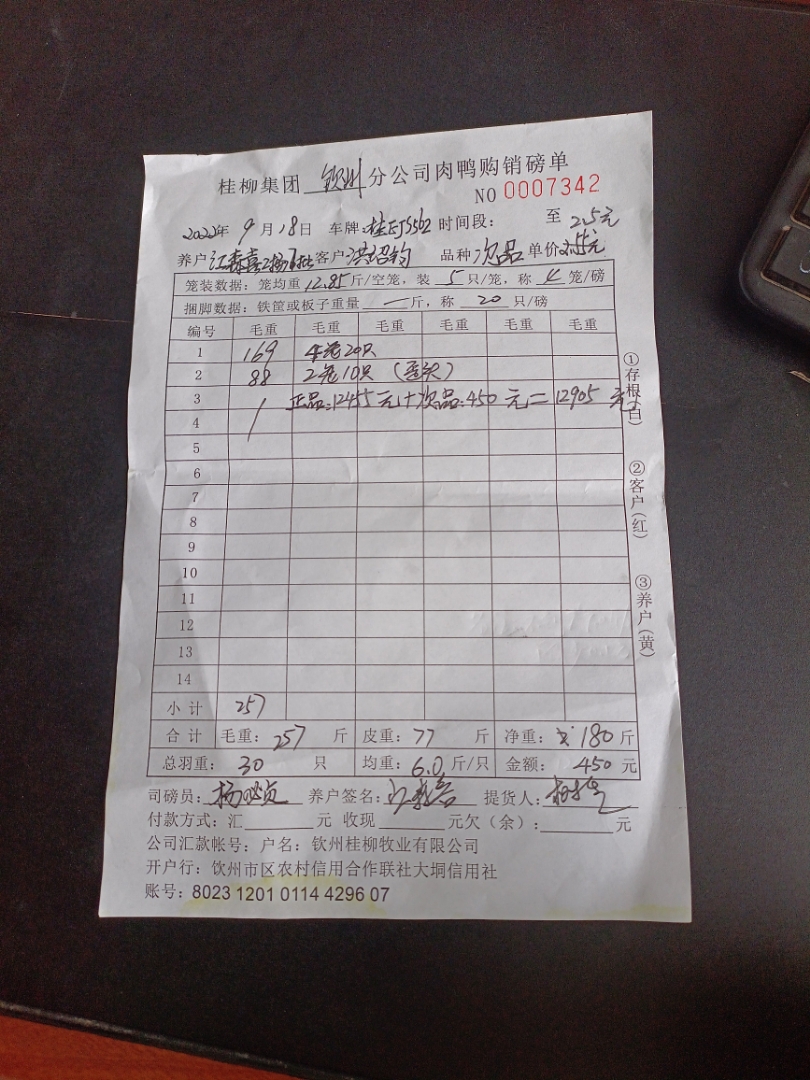 桂柳集团 钦州 分公司肉鸭购销磅单
NO 0007342
2022年 9 月 18日 车牌:桂EJS562 时间段: 至 2.5元
养户 江森喜 客户 洪绍钧 品种 次品 单价 元
笼装数据:笼均重 12.85 斤/空笼,装 5 只/笼,称 4 笼/磅
捆脚数据:铁筐或板子重量 一 斤,称 20 只/磅
编号 毛重 毛重 毛重 毛重 毛重 毛重
1 169 4笼20只
2 88 2笼10只 (歪头)
3 正品:12455元+次品:450元=12905元
4
5
6
7
8
9
10
11
12
13
14
小计 257
合计 毛重: 257 斤 皮重: 77 斤 净重: 180 斤
总羽重: 30 只 均重: 6.0 斤/只 金额: 450 元
①存根(白)
②客户(红)
③养户(黄)
司磅员: 养户签名: 提货人:
付款方式:汇 元 收现 元欠(余): 元
公司汇款帐号:户名:钦州桂柳牧业有限公司
开户行:钦州市区农村信用合作联社大垌信用社
账号:8023 1201 0114 4296 07